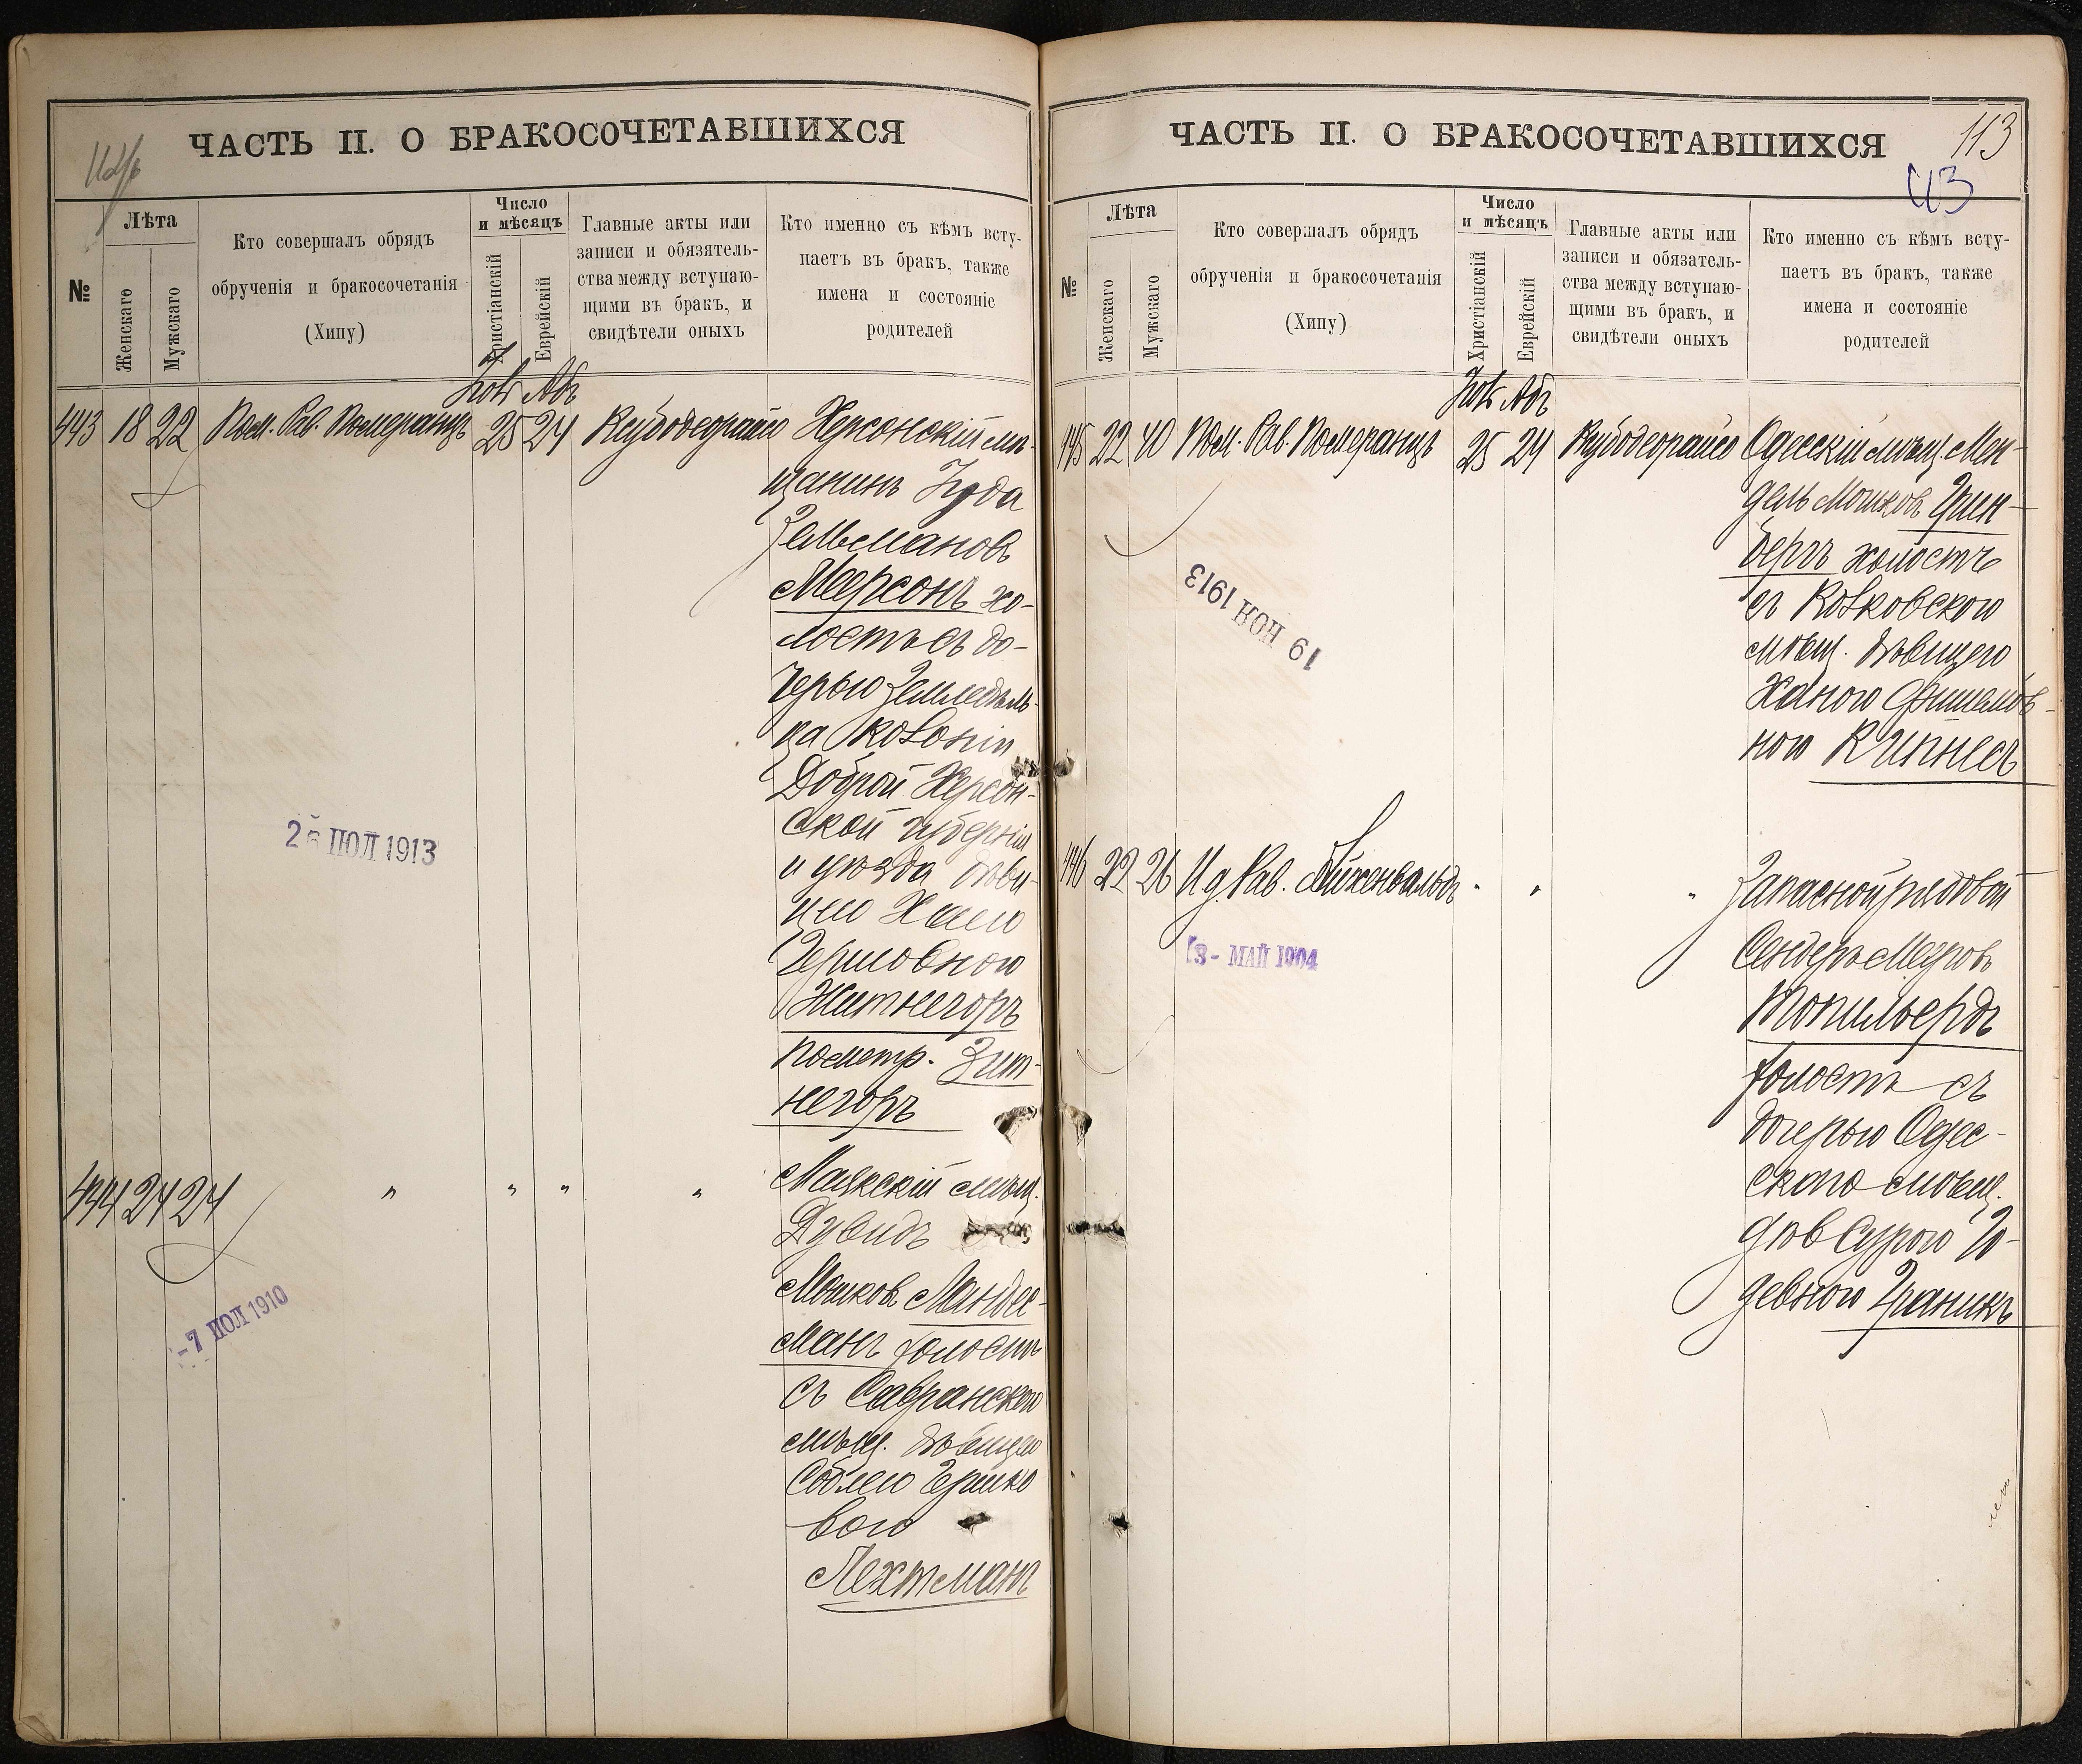 ЧАСТЬ II. О БРАКОСОЧЕТАВШИХСЯ
№
Лѣта
Женскаго
Мужскаго
Кто совершалъ обрядъ
обрученія и бракосочетанія
(Хипу)
Число
и мѣсяцъ
Христіанскій
Еврейскій
Главные акты или
записи и обязатель-
ства между вступаю-
щими въ бракъ, и
свидѣтели оныхъ
Кто именно съ кѣмъ всту-
паетъ въ бракъ, также
имена и состояніе
родителей
443 18 22 Пом. Рав. Померанцъ 25 24 Херсонскій мѣ-
щанинъ Іуда
Зельмановъ
Меерсонъ хо-
лостъ съ до-
черью земледѣль-
ца колоніи
Доброй Херсон-
ской губерніи
и уѣзда дѣви-
цею Хаею
Гершовною
Житнегоръ
по метр. Зит-
негоръ
26 ІЮЛ 1913
444 24 24 " " " " Маякскій мѣщ.
Дувидъ
Мошковъ Ландес-
манъ холостъ
съ Савранскою
мѣщ. дѣвицею
Соблею Гершко
вою
Лехтманъ
-7 ІЮЛ 1910
ЧАСТЬ II. О БРАКОСОЧЕТАВШИХСЯ
113
№
Лѣта
Женскаго
Мужскаго
Кто совершалъ обрядъ
обрученія и бракосочетанія
(Хипу)
Число
и мѣсяцъ
Христіанскій
Еврейскій
Главные акты или
записи и обязатель-
ства между вступаю-
щими въ бракъ, и
свидѣтели оныхъ
Кто именно съ кѣмъ всту-
паетъ въ бракъ, также
имена и состояніе
родителей
445 22 40 Пом. Рав. Померанцъ 25 24 Одесскій мѣщ. Мен-
дель Мошковъ Грин-
бергъ холостъ
съ Ковковскою
мѣщ. дѣвицею
Ханою Фишелев-
ною Кипнесъ
19 НОЯ 1913
446 22 26 И д. Рав. Айхенвальдъ " " " Запасной рядовой
Сендеръ Мееровъ
Топильбердъ
холостъ съ
дочерью Одес-
скаго мѣщ.
дѣв Сурою Іо-
девною Граникъ
3- МАЙ 1904